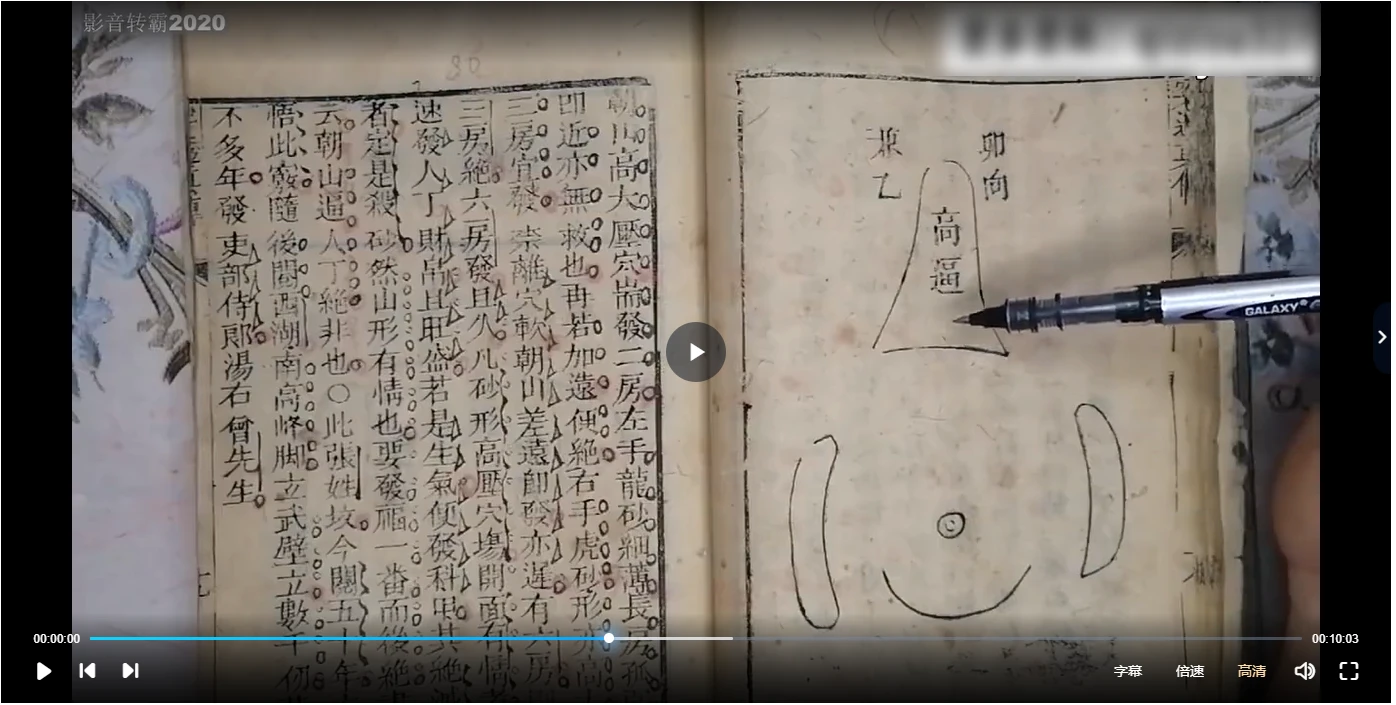 影音转霸2020
卯向
兼乙
高逼
朝山高大壓穴耑發二房左手龍砂細薄長房孤
即近亦無救也再若加遠便絕右手虎砂形亦高
三房宜發崇離穴軟朝山差遠即發亦遲有六房
三房絕六房發且久凡砂形高壓穴塲開面有情
速發人丁財帛且旺盛若是生氣便發科甲其絕
者定是殺砂然山形有情也要發福一番而後絕
云朝山逼人丁絕非也○此張姓坟今關五十年
悟此竅隨後閱西湖南高峰脚立武壁立數千仞
不多年發吏部侍郞湯右曾先生
GALAXY
00:00:00
00:10:03
字幕
倍速
高清